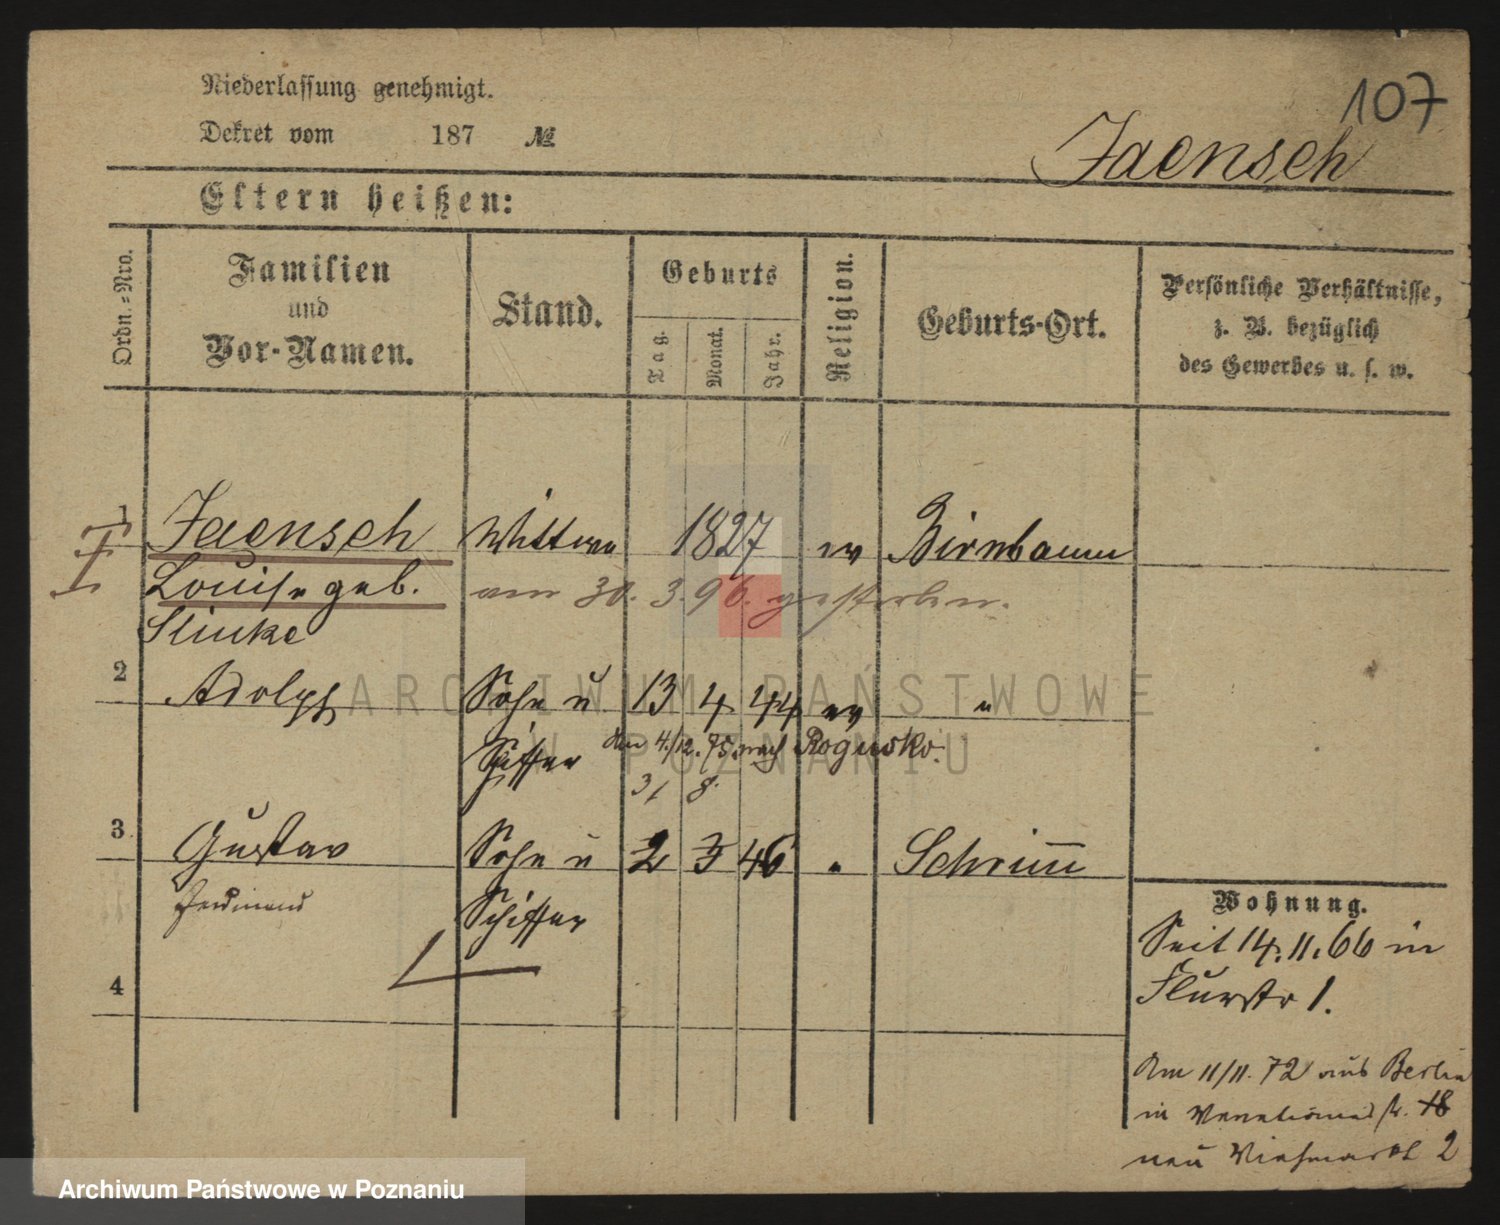 107
Niederlassung genehmigt.
Dekret vom 187 №
Jaensch
Eltern heißen:
Ordn.=Nro.
Familien und Vor-Namen.
Stand.
Geburts
Tag.
Monat.
Jahr.
Religion.
Geburts-Ort.
Persönliche Verhältnisse,
z. B. bezüglich
des Gewerbes u. s. w.
1 Jaensch Wittwe 1827 ev Birnbaum
I
Louise geb. am 30.3.96. gestorben.
Slinke
2 Adolph Sohn u 13 4 44 ev "
Schiffer Am 4/12.75 nach Rogusko.
31 8
3 Gustav Sohn u 2 3 46 " Schrimm
Ferdinand Schiffer
4
Wohnung.
Seit 14.11.66 in
Flurstr 1.
Am 11/11.72 aus Berlin
in str. 18
neu Viehmarkt 2
ARCHIWUM PAŃSTWOWE
W POZNANIU
Archiwum Państwowe w Poznaniu